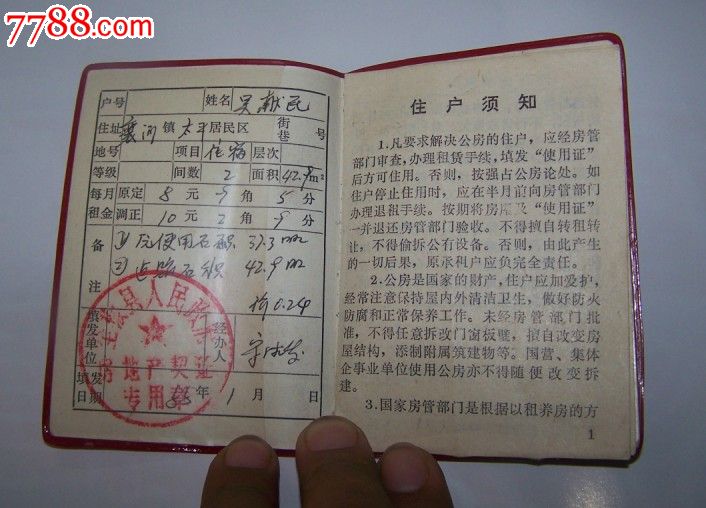 7788.com
户号 姓名 吴献民
住址 襄河 镇 太平 居民区 街巷 号
地号 项目 住宿 层次
等级 间数 2 面积 42.9m²
每月租金 原定 8 元 9 角 5 分
调正 10 元 2 角 9 分
备注 ① 应使用面积 37.3 m²
② 占用面积 42.9 m²
价0.24
填发单位 县人民政府 房地产契证专用章 经办人
填发日期 88 年 1 月 日
住户须知
1.凡要求解决公房的住户，应经房管
部门审查，办理租赁手续，填发“使用证”
后方可住用。否则，按强占公房论处。如
住户停止住用时，应在半月前向房管部门
办理退租手续。按期将房屋及“使用证”
一并退还房管部门验收。不得擅自转租转
让，不得偷拆公有设备。否则，由此产生
的一切后果，原承租户应负完全责任。
2.公房是国家的财产，住户应加爱护，
经常注意保持屋内外清洁卫生，做好防火
防腐和正常保养工作。未经房管部门批
准，不得任意拆改门窗板壁，擅自改变房
屋结构，添制附属筑建物等。国营、集体
企事业单位使用公房亦不得随便改变拆
建。
3.国家房管部门是根据以租养房的方
1